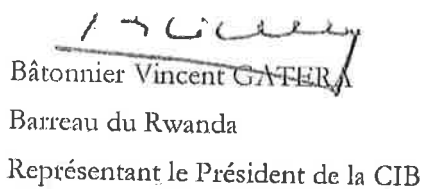 Bâtonnier Vincent GATERA
Barreau du Rwanda
Représentant le Président de la CIB